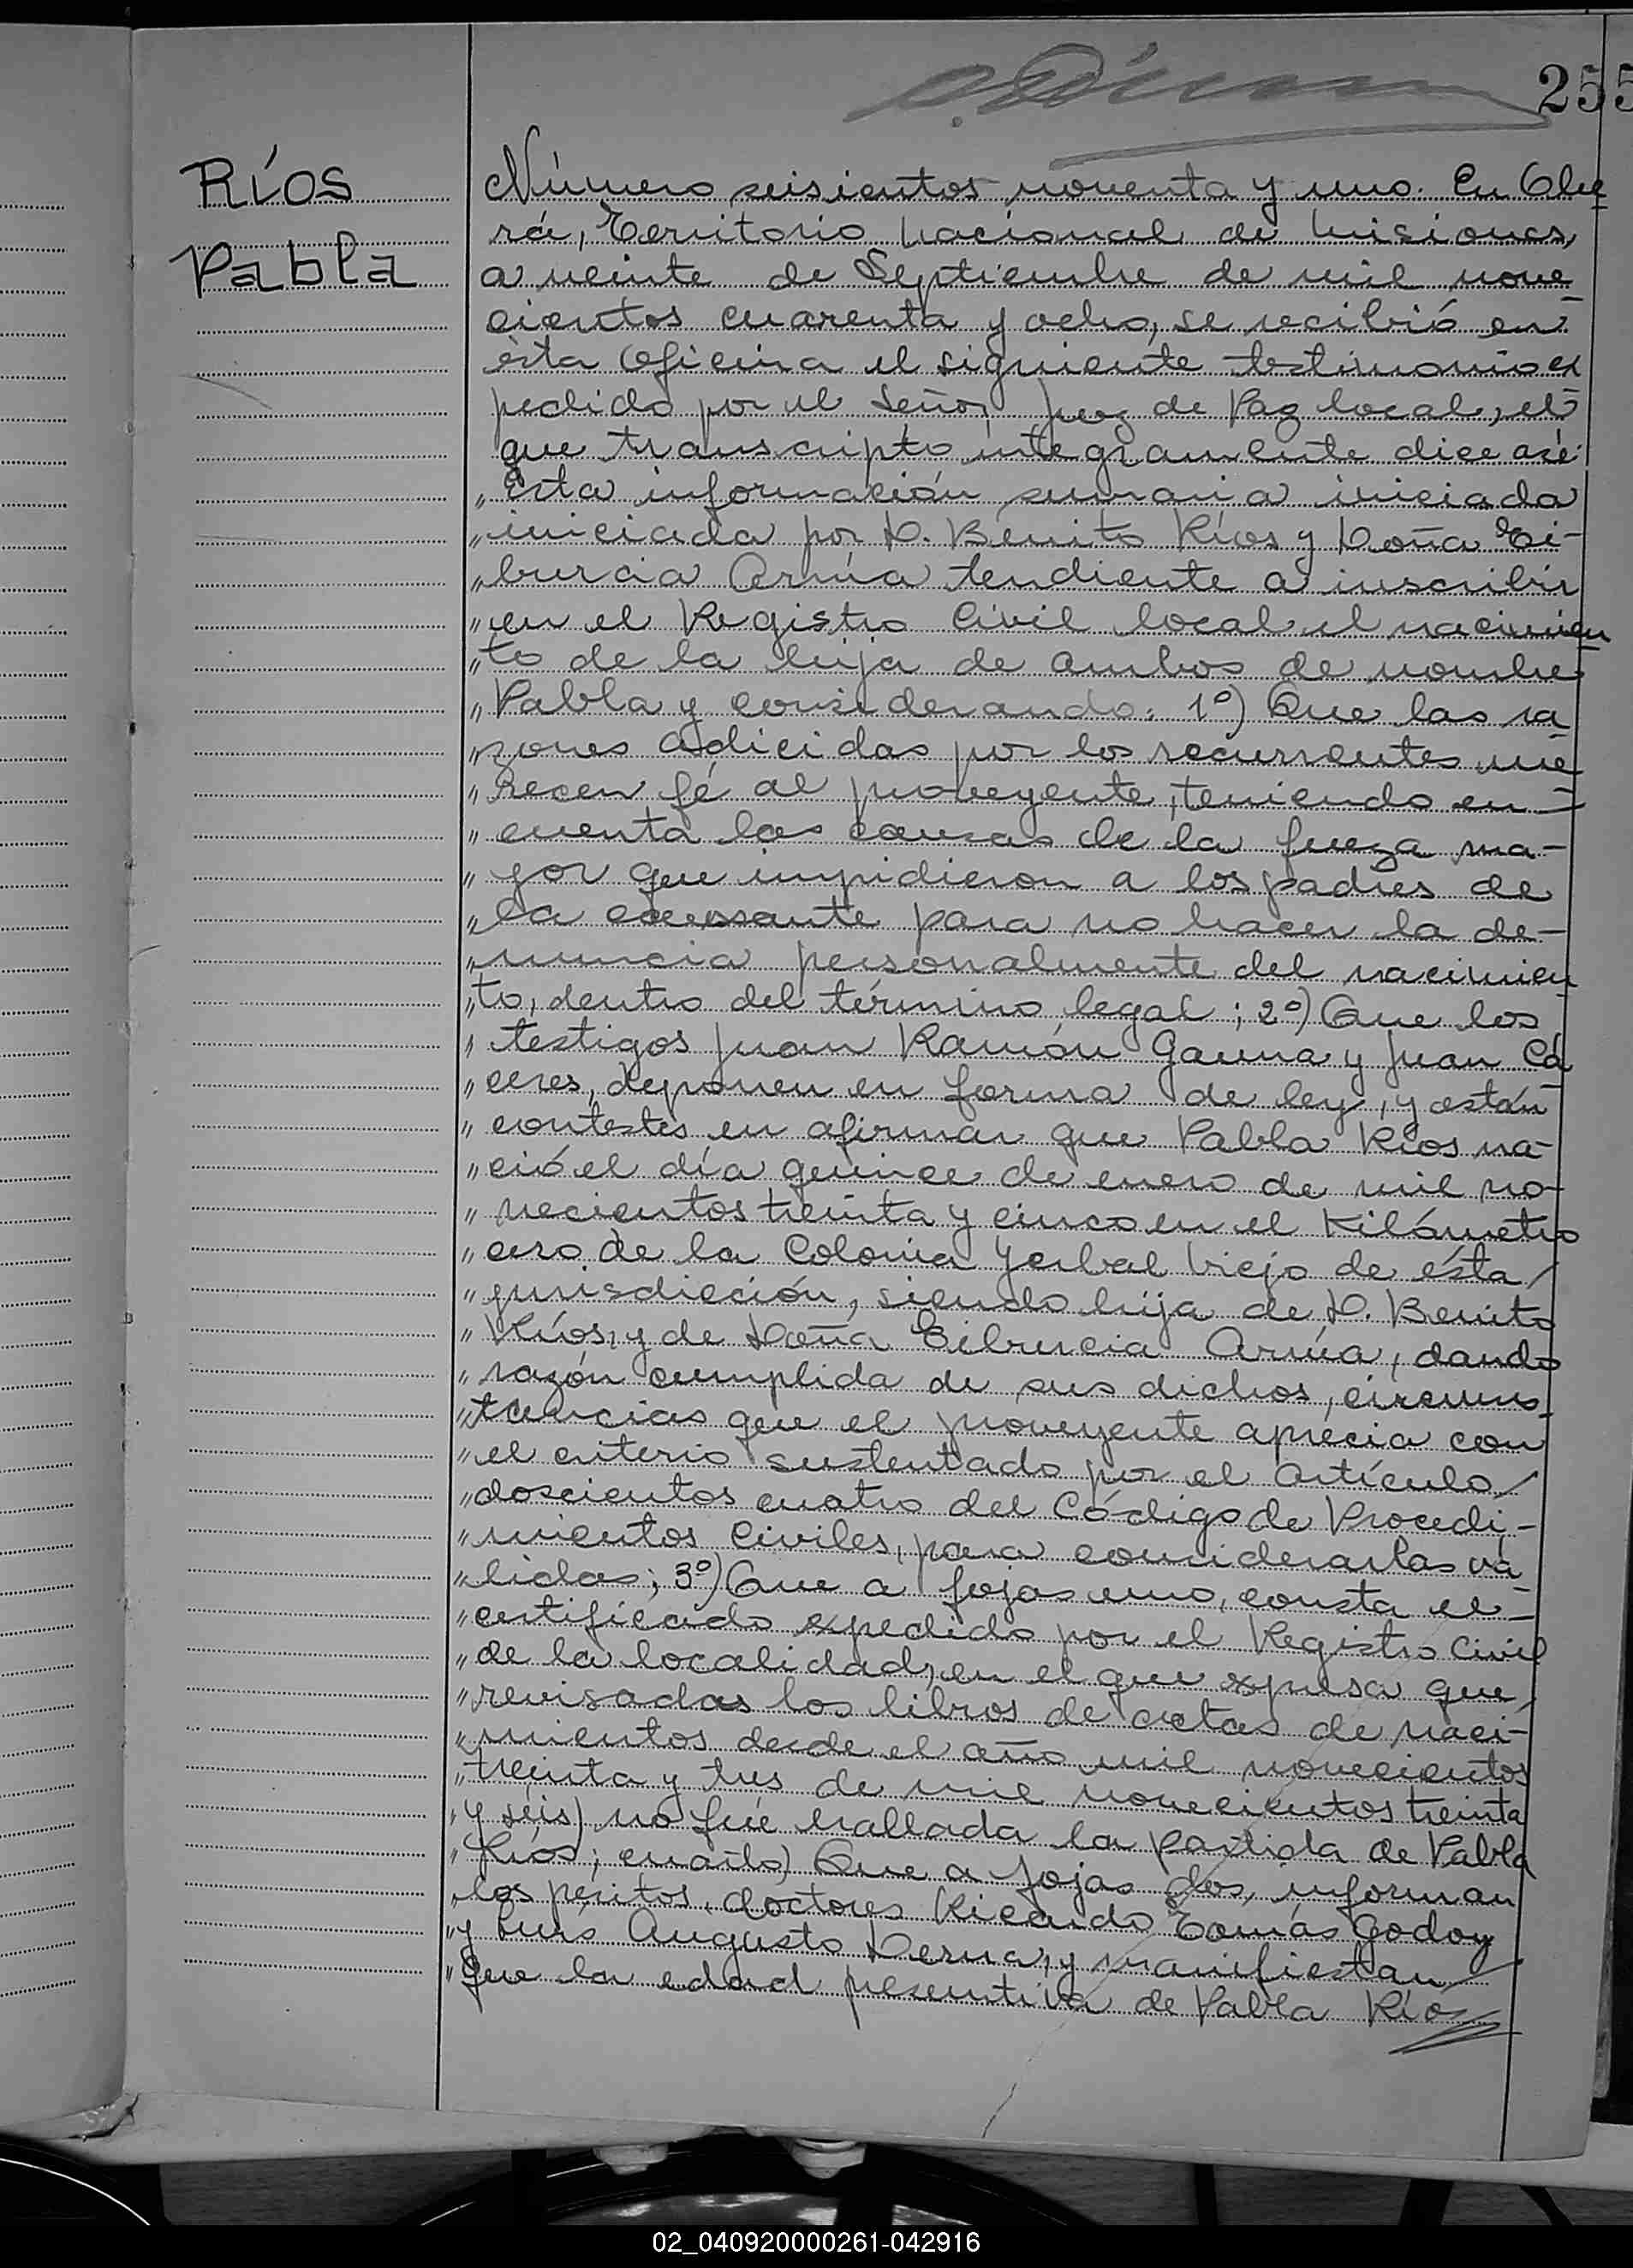 255
Ríos
Pabla
Número seisientos noventa y uno. En Obe
rá, Territorio Nacional de Misiones,
a veinte de Septiembre de mil nove
cientos cuarenta y ocho, se recibió en
ésta Oficina el siguiente testimonio ex
pedido por el Señor Juez de Paz local, el
que transcripto integramente dice así:
"Esta información sumaria iniciada
"iniciada por D. Benito Ríos y Doña Ti-
"burcia Arrúa tendiente a inscribir
"en el Registro Civil local el nacimien
"to de la hija de ambos de nombre
"Pabla y considerando: 1º) Que las ra
"zones adicidas por los recurrentes me
"recen fé al proveyente, teniendo en
"cuenta las causas de la fueza ma-
"yor que impidieron a los padres de
"la causante para no hacer la de-
"nuncia personalmente del nacimien
"to, dentro del término legal; 2º) Que los
"testigos Juan Ramón Gauna y Juan Cá
"ceres, deponen en forma de ley, y están
"contestes en afirmar que Pabla Ríos na-
"ció el día quince de enero de mil no-
"vecientos treinta y cinco en el Kilómetro
"cero de la Colonia Yerbal Viejo de ésta
"jurisdicción, siendo hija de D. Benito
"Ríos, y de Doña Tibrucia Arrúa, dando
"razón cumplida de sus dichos, circuns-
"tancias que el proveyente aprecia con
"el criterio sustentado por el Artículo
"doscientos cuatro del Código de Procedi-
"mientos Civiles, para considerarlas vá
"lidas; 3º) Que a fojas uno, consta el
"certificado expedido por el Registro Civil
"de la localidad, en el que expresa que
"revisadas los libros de actas de naci-
"mientos desde el año mil novecientos
"treinta y tres de mil novecientos treinta
"y séis) no fué hallada la partida de Pabla
"Ríos; cuarto) Que a fojas dos, informan
"los peritos, doctores Ricardo Tomás Godoy
"y Luis Augusto Derna, y manifiestan
"que la edad presuntiva de Pabla Ríos
02_040920000261-042916